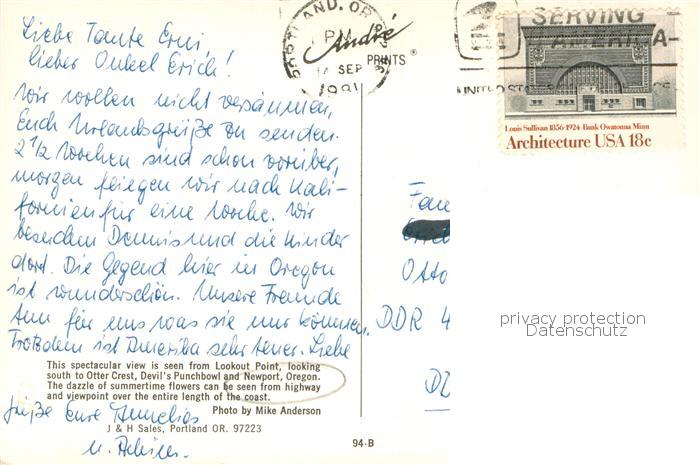 Liebe Tante Erni,
lieber Onkel Erich!
Wir wollen nicht versäumen,
Euch Urlaubsgrüße zu senden.
2 1/2 Wochen sind schon vorüber,
morgen fliegen wir nach Kali-
fornien für eine Woche. Wir
besuchen Dennis und die Kinder
dort. Die Gegend hier in Oregon
ist wunderschön. Unsere Freunde
tun für uns was sie nur können.
Trotzdem ist Amerika sehr teuer. Liebe
This spectacular view is seen from Lookout Point, looking
south to Otter Crest, Devil's Punchbowl and Newport, Oregon.
The dazzle of summertime flowers can be seen from highway
and viewpoint over the entire length of the coast.
Photo by Mike Anderson
Grüße Eure Annelies
J & H Sales, Portland OR. 97223
u. Achim.
94-B
PORTLAND, OR
PM
14 SEP
1981
André
PRINTS®
SERVING
AMERICA
UNITED ST
Louis Sullivan 1856-1924 Bank Owatonna Minn
Architecture USA 18c
Fam
Otto
DDR 4
privacy protection
Datenschutz